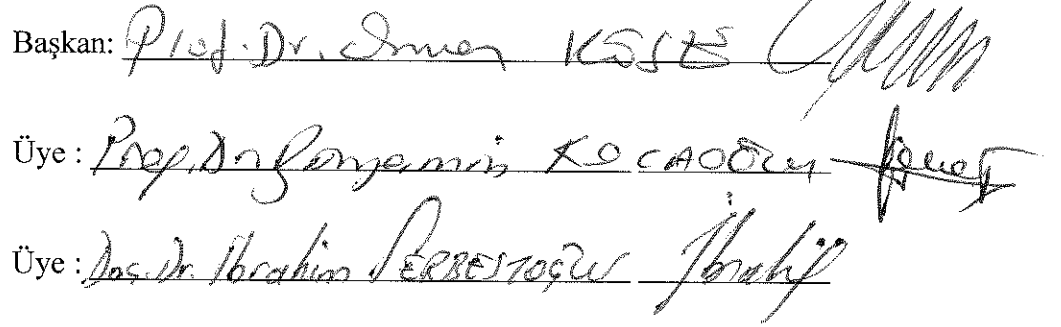 Başkan: Prof. Dr. Osman KÖSE
Üye : Prof. Dr. Bünyamin KOCAOĞLU
Üye : Doç. Dr. İbrahim SERBESTOĞLU İbrahim